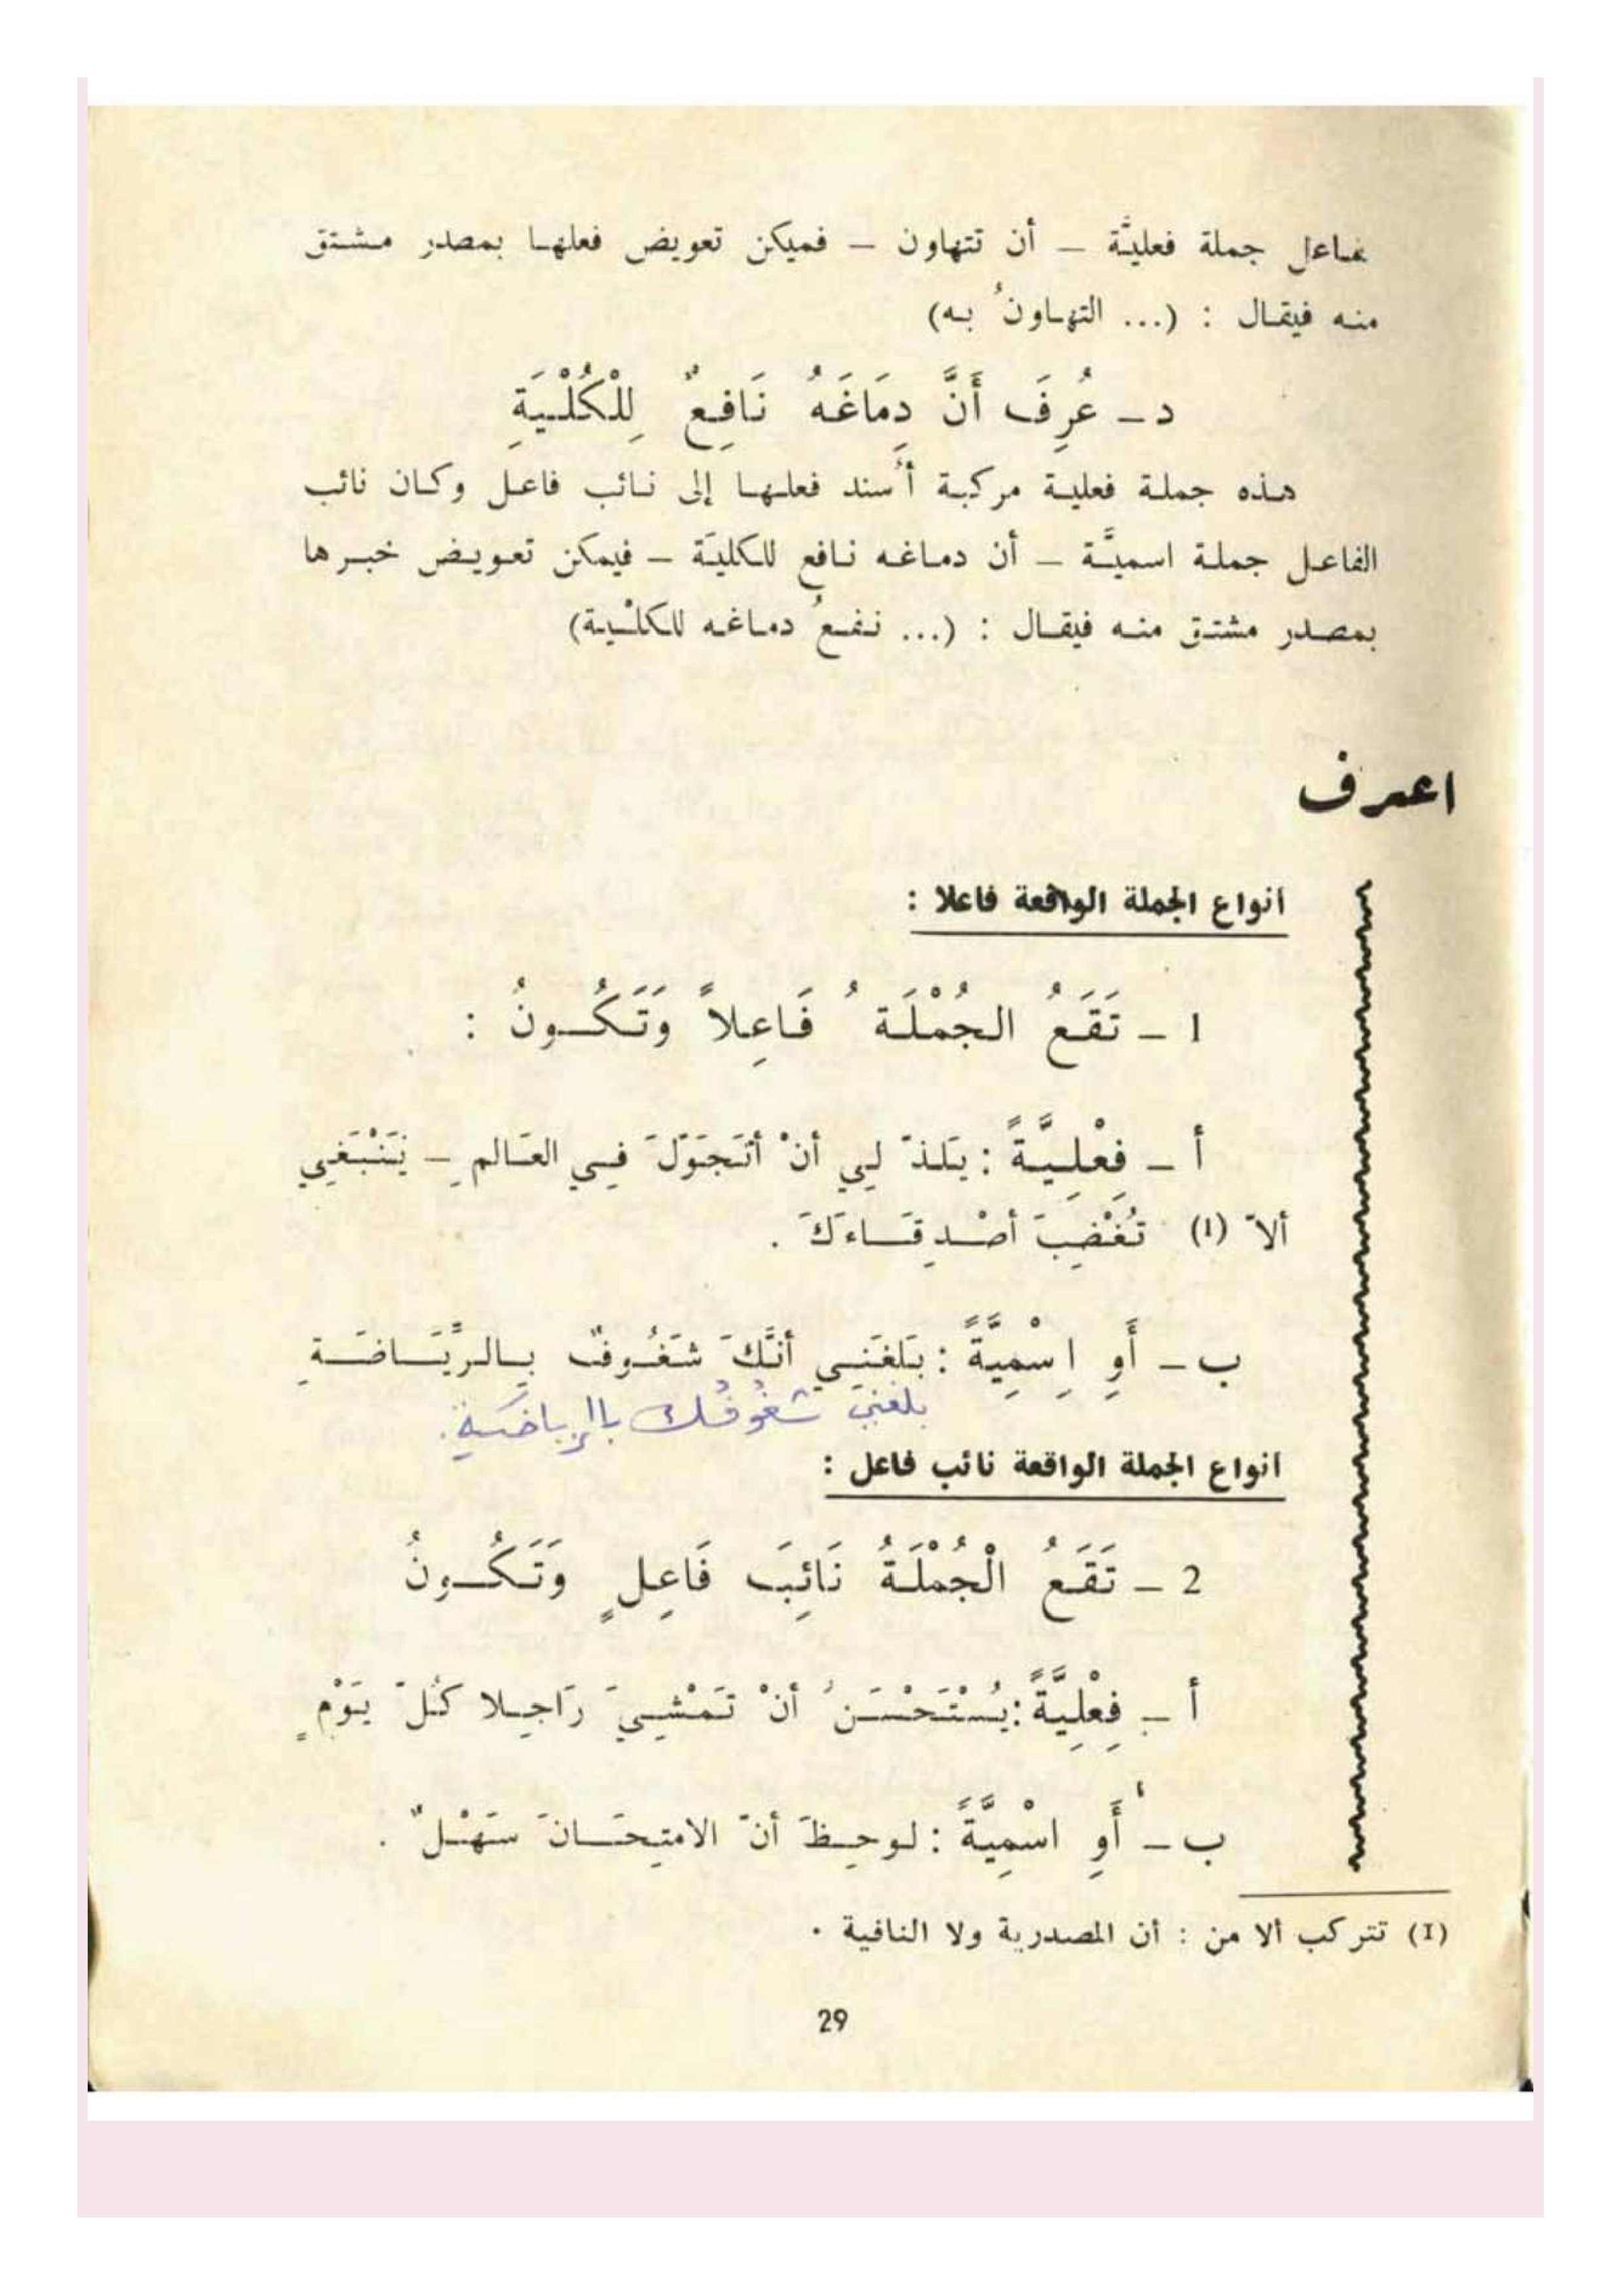 فاعل جملة فعليَّة – أن تتهاون – فميكن تعويض فعلها بمصدر مشتق
منه فيقال : (... التهاونُ به)
د – عُرِفَ أَنَّ دِمَاغَهُ نَافِعٌ لِلْكُلْيَةِ
هذه جملة فعلية مركبة أُسند فعلها إلى نائب فاعل وكان نائب
الفاعل جملة اسميَّة – أن دماغه نافع للكليَة – فيمكن تعويض خبرها
بمصدر مشتق منه فيقال : (... نفعُ دماغه للكلْية)
اعرف
انواع الجملة الواقعة فاعلا :
1 – تَقَعُ الجُمْلَةُ فَاعِلاً وَتَكُونُ :
أ – فِعْلِيَّةً : يَلذّ لِي أنْ أتَجَوّلَ فِي العَالمِ – يَنْبَغِي
ألاّ (1) تُغْضِبَ أصْدِقَاءَكَ .
ب – أَوِ اِسْمِيَّةً : بَلغَنِي أنَّكَ شَغُوفٌ بِالرِّيَاضَةِ
بلغني شغُوفُك بالرياضَةِ.
انواع الجملة الواقعة نائب فاعل :
2 – تَقَعُ الْجُمْلَةُ نَائِبَ فَاعِلٍ وَتَكُونُ
أ – فِعْلِيَّةً : يُسْتَحْسَنُ أنْ تَمْشِيَ رَاجِلا كُلّ يَوْمٍ
ب – أَوِ اسْمِيَّةً : لوحِظَ أنّ الامتِحَانَ سَهْلٌ .
(1) تتركب ألا من : أن المصدرية ولا النافية .
29